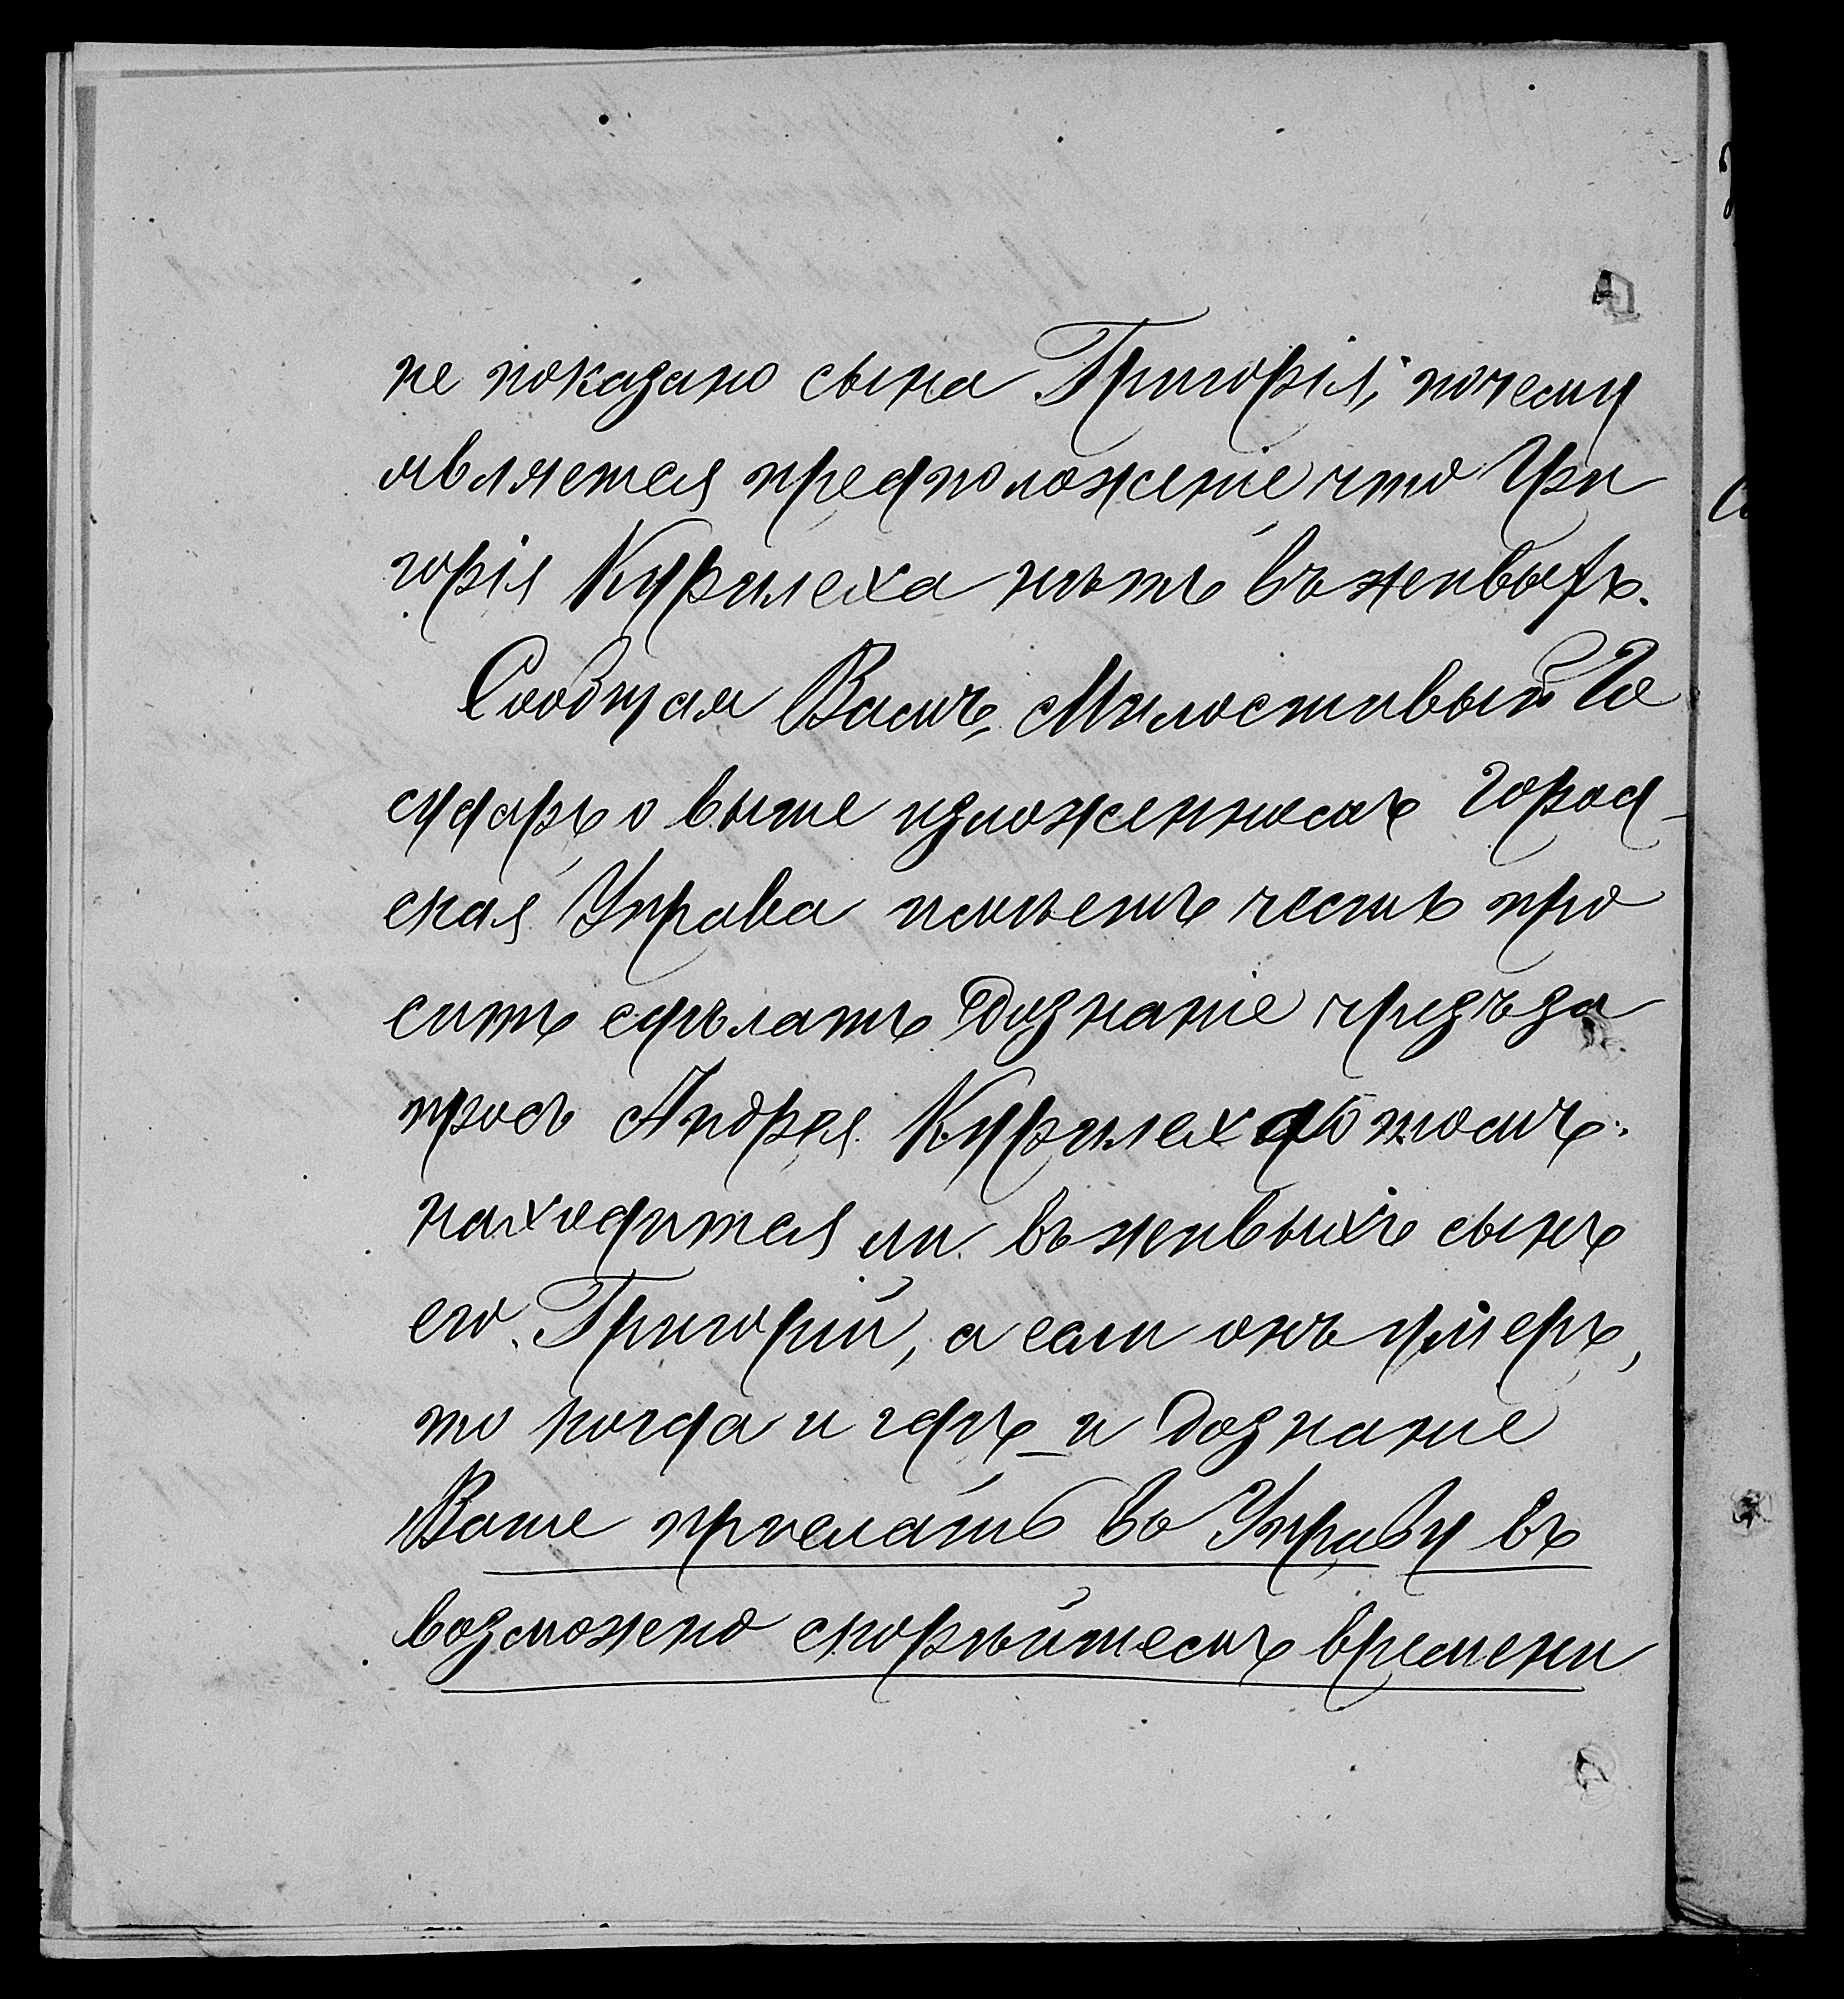 не показано сына Григорія, почему
является предположеніе что Гри
горія Курилеха нѣтъ въ живыхъ.
Сообщая Вамъ, Милостивый Го
сударь о выше изложенномъ Город-
ская Управа имѣетъ честь про
сить сдѣлать дознаніе чрезъ за
просъ Андрея Курилеха о томъ:
находится ли въ живыхъ сынъ
его Григорій, а если онъ умеръ,
то когда и гдѣ и дознаніе
Ваше прислать въ Управу въ
возможно скорѣйшемъ времени